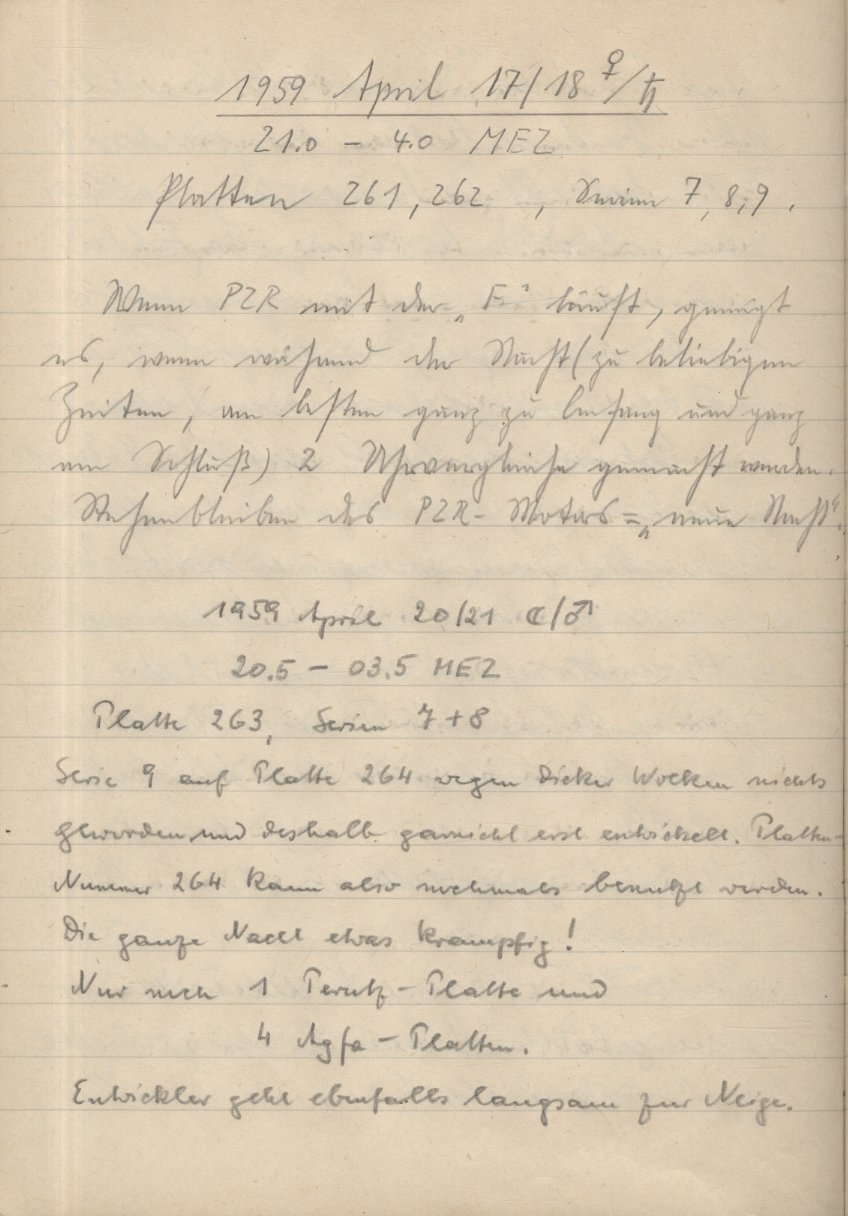 1959 April 17/18 ♀/♄
21.0 – 4.0 MEZ
Platten 261, 262 , Serien 7, 8, 9.
Wenn PZR mit der „F“ läuft, genügt
es, wenn während der Nacht (zu beliebigen
Zeiten, am besten ganz zu Anfang und ganz
am Schluß) 2 Uhrvergleiche gemacht werden.
Stehenbleiben des PZR-Motors = „neue Nacht“.
1959 April 20/21 ☾/♂
20.5 – 03.5 MEZ
Platte 263, Serien 7+8
Serie 9 auf Platte 264 wegen dicker Wolken nichts
geworden und deshalb garnicht erst entwickelt. Platten-
Nummer 264 kann also nochmals benutzt werden.
Die ganze Nacht etwas krampfig!
Nur noch 1 Perutz-Platte und
4 Agfa-Platten.
Entwickler geht ebenfalls langsam zur Neige.